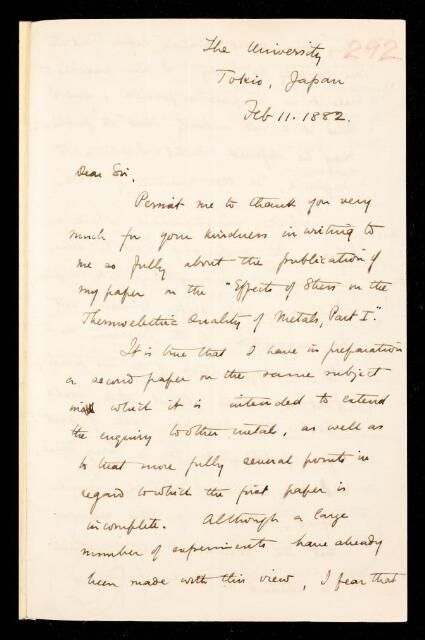 292
The University
Tokio, Japan
Feb 11. 1882.
Dear Sir,
Permit me to thank you very
much for your kindness in writing to
me so fully about the publication of
my paper on the "Effects of Stress on the
Thermoelectric Quality of Metals, Part I."
It is true that I have in preparation
a second paper on the same subject
in which it is intended to extend
the enquiry to other metals, as well as
to treat more fully several points in
regard to which the first paper is
incomplete. Although a large
number of experiments have already
been made with this view, I fear that